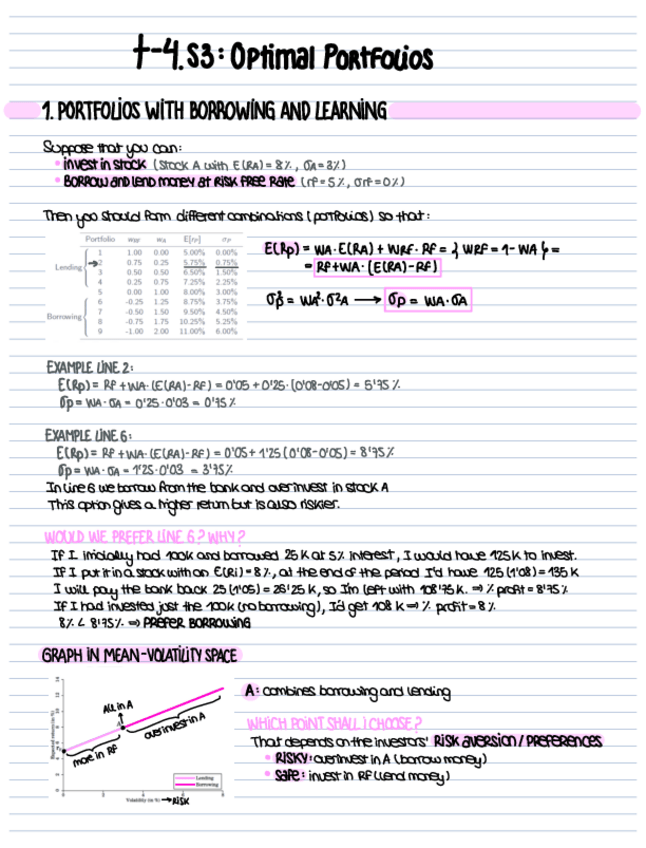 t-4.S3: Optimal Portfolios
1. PORTFOLIOS WITH BORROWING AND LEARNING
Suppose that you can:
• invest in stock (Stock A with E(RA) = 8%, σA = 3%)
• BORROW and lend money at RISK FREE RATE (rf = 5%, σrf = 0%)
Then you should form different combinations (portfolios) so that:
Portfolio wRF wA E[rp] σp
1 1.00 0.00 5.00% 0.00%
Lending → 2 0.75 0.25 5.75% 0.75%
3 0.50 0.50 6.50% 1.50%
4 0.25 0.75 7.25% 2.25%
5 0.00 1.00 8.00% 3.00%
6 -0.25 1.25 8.75% 3.75%
Borrowing 7 -0.50 1.50 9.50% 4.50%
8 -0.75 1.75 10.25% 5.25%
9 -1.00 2.00 11.00% 6.00%
E(Rp) = WA·E(RA) + WRF·RF = { WRF = 1-WA } =
= RF+WA·(E(RA)-RF)
σ²p = WA²·σ²A → σp = WA·σA
EXAMPLE LINE 2:
E(Rp) = RF + WA·(E(RA)-RF) = 0'05 + 0'25·(0'08-0'05) = 5'75%
σp = WA·σA = 0'25·0'03 = 0'75%
EXAMPLE LINE 6:
E(Rp) = RF + WA·(E(RA)-RF) = 0'05 + 1'25(0'08-0'05) = 8'75%
σp = WA·σA = 1'25·0'03 = 3'75%
In Line 6 we borrow from the bank and overinvest in stock A
This option gives a higher return but is also riskier.
WOULD WE PREFER LINE 6? WHY?
If I inicially had 100k and borrowed 25K at 5% interest, I would have 125K to invest.
If I put it in a stock with an E(Ri) = 8%, at the end of the period I'd have 125(1'08) = 135 K
I will pay the bank back 25(1'05) = 26'25 K, so I'm left with 108'75 K. ⇒ % profit = 8'75%
If I had invested just the 100k (no borrowing), I'd get 108 K ⇒ % profit = 8%
8% < 8'75% ⇒ PREFER BORROWING
GRAPH IN MEAN-VOLATILITY SPACE
All in A
more in RF
overinvest in A
Expected return (in %)
0 2 4 6 8 10 12 14
Lending
Borrowing
Volatility (in %) → RISK
A: combines borrowing and lending
WHICH POINT SHALL I CHOOSE?
That depends on the investors' RISK AVERSION / PREFERENCES
• RISKY: overinvest in A (borrow money)
• safe: invest in RF (lend money)